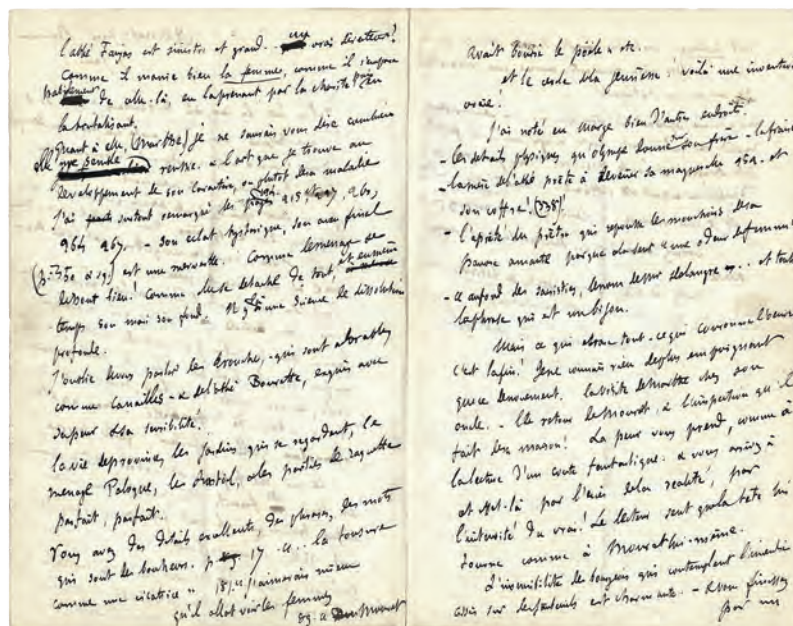 l'abbé Faujas est sinistre et grand – un vrai directeur!
Comme il manie bien la femme, comme il s'empare
habilement de celle-là, en la prenant par la charité & en
la brutalisant.
Quant à elle, (Marthe) je ne saurais vous dire combien
elle me semble réussie. & l'art que je trouve au
développement de son caractère, ou plutôt de sa maladie
J'ai surtout remarqué les pages 194. 215 & 227, 260,
264 267. – son état hystérique, son aveu final
(p. 350 à 19) est une merveille. Comme le ménage se
dissout bien! Comme elle se détache de tout, et en même
temps son moi son fond. Il y a là une science de dissolution
profonde.
J'oublie de vous parler des Trouche, – qui sont adorables
comme canailles – & de l'abbé Bourrette, exquis avec
sa peur & sa sensibilité.
La vie de province, les jardins qui se regardent, le
ménage Paloque, les Rastoil, & les parties de raquette
parfait, parfait.
Vous avez des détails excellents, des phrases, des mots
qui sont des bonheurs. p 17 « .. la tonsure
comme une cicatrice » 181. « j'aimerais mieux
qu'il allât voir les femmes
89. « Mouret
avait bourré le poêle » etc.
et le cercle de la jeunesse! voilà une invention
vraie!
J'ai noté en marge bien d'autres endroits.
– les détails physiques qu'Olympe donne sur son frère – la fraise
– la mère de l'abbé prête à devenir sa maquerelle 152. et
son coffre! (338)!
– l'âpreté du prêtre qui repousse les mouchoirs de sa
pauvre amante parce que cela sent « une odeur de femme
– « au fond des sacristies, le nom de Mr Delangre »... et toute
la phrase qui est un bijou.
Mais ce qui écrase tout – ce qui couronne l'œuvre
c'est la fin! Je ne connais rien de plus empoignant
que ce dénouement. La visite de Marthe chez son
oncle. – Le retour de Mouret, & l'inspection qu'il
fait de sa maison! La peur vous prend, comme à
la lecture d'un conte fantastique. & vous arrivez à
cet effet-là par l'excès de la réalité, par
l'intensité du vrai! Le lecteur sent que la tête lui
tourne comme à Mouret lui-même.
L'insensibilité des bourgeois qui contemplent l'incendie
assis sur des fauteuils est charmante. – & vous finissez
par un